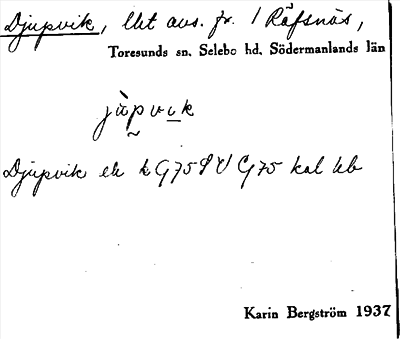 Djupvik, lht avs. fr. 1 Räfsnäs,
Toresunds sn. Selebo hd. Södermanlands län
jùpvik
Djupvik ek kG75SV G75 kal bb
Karin Bergström 1937